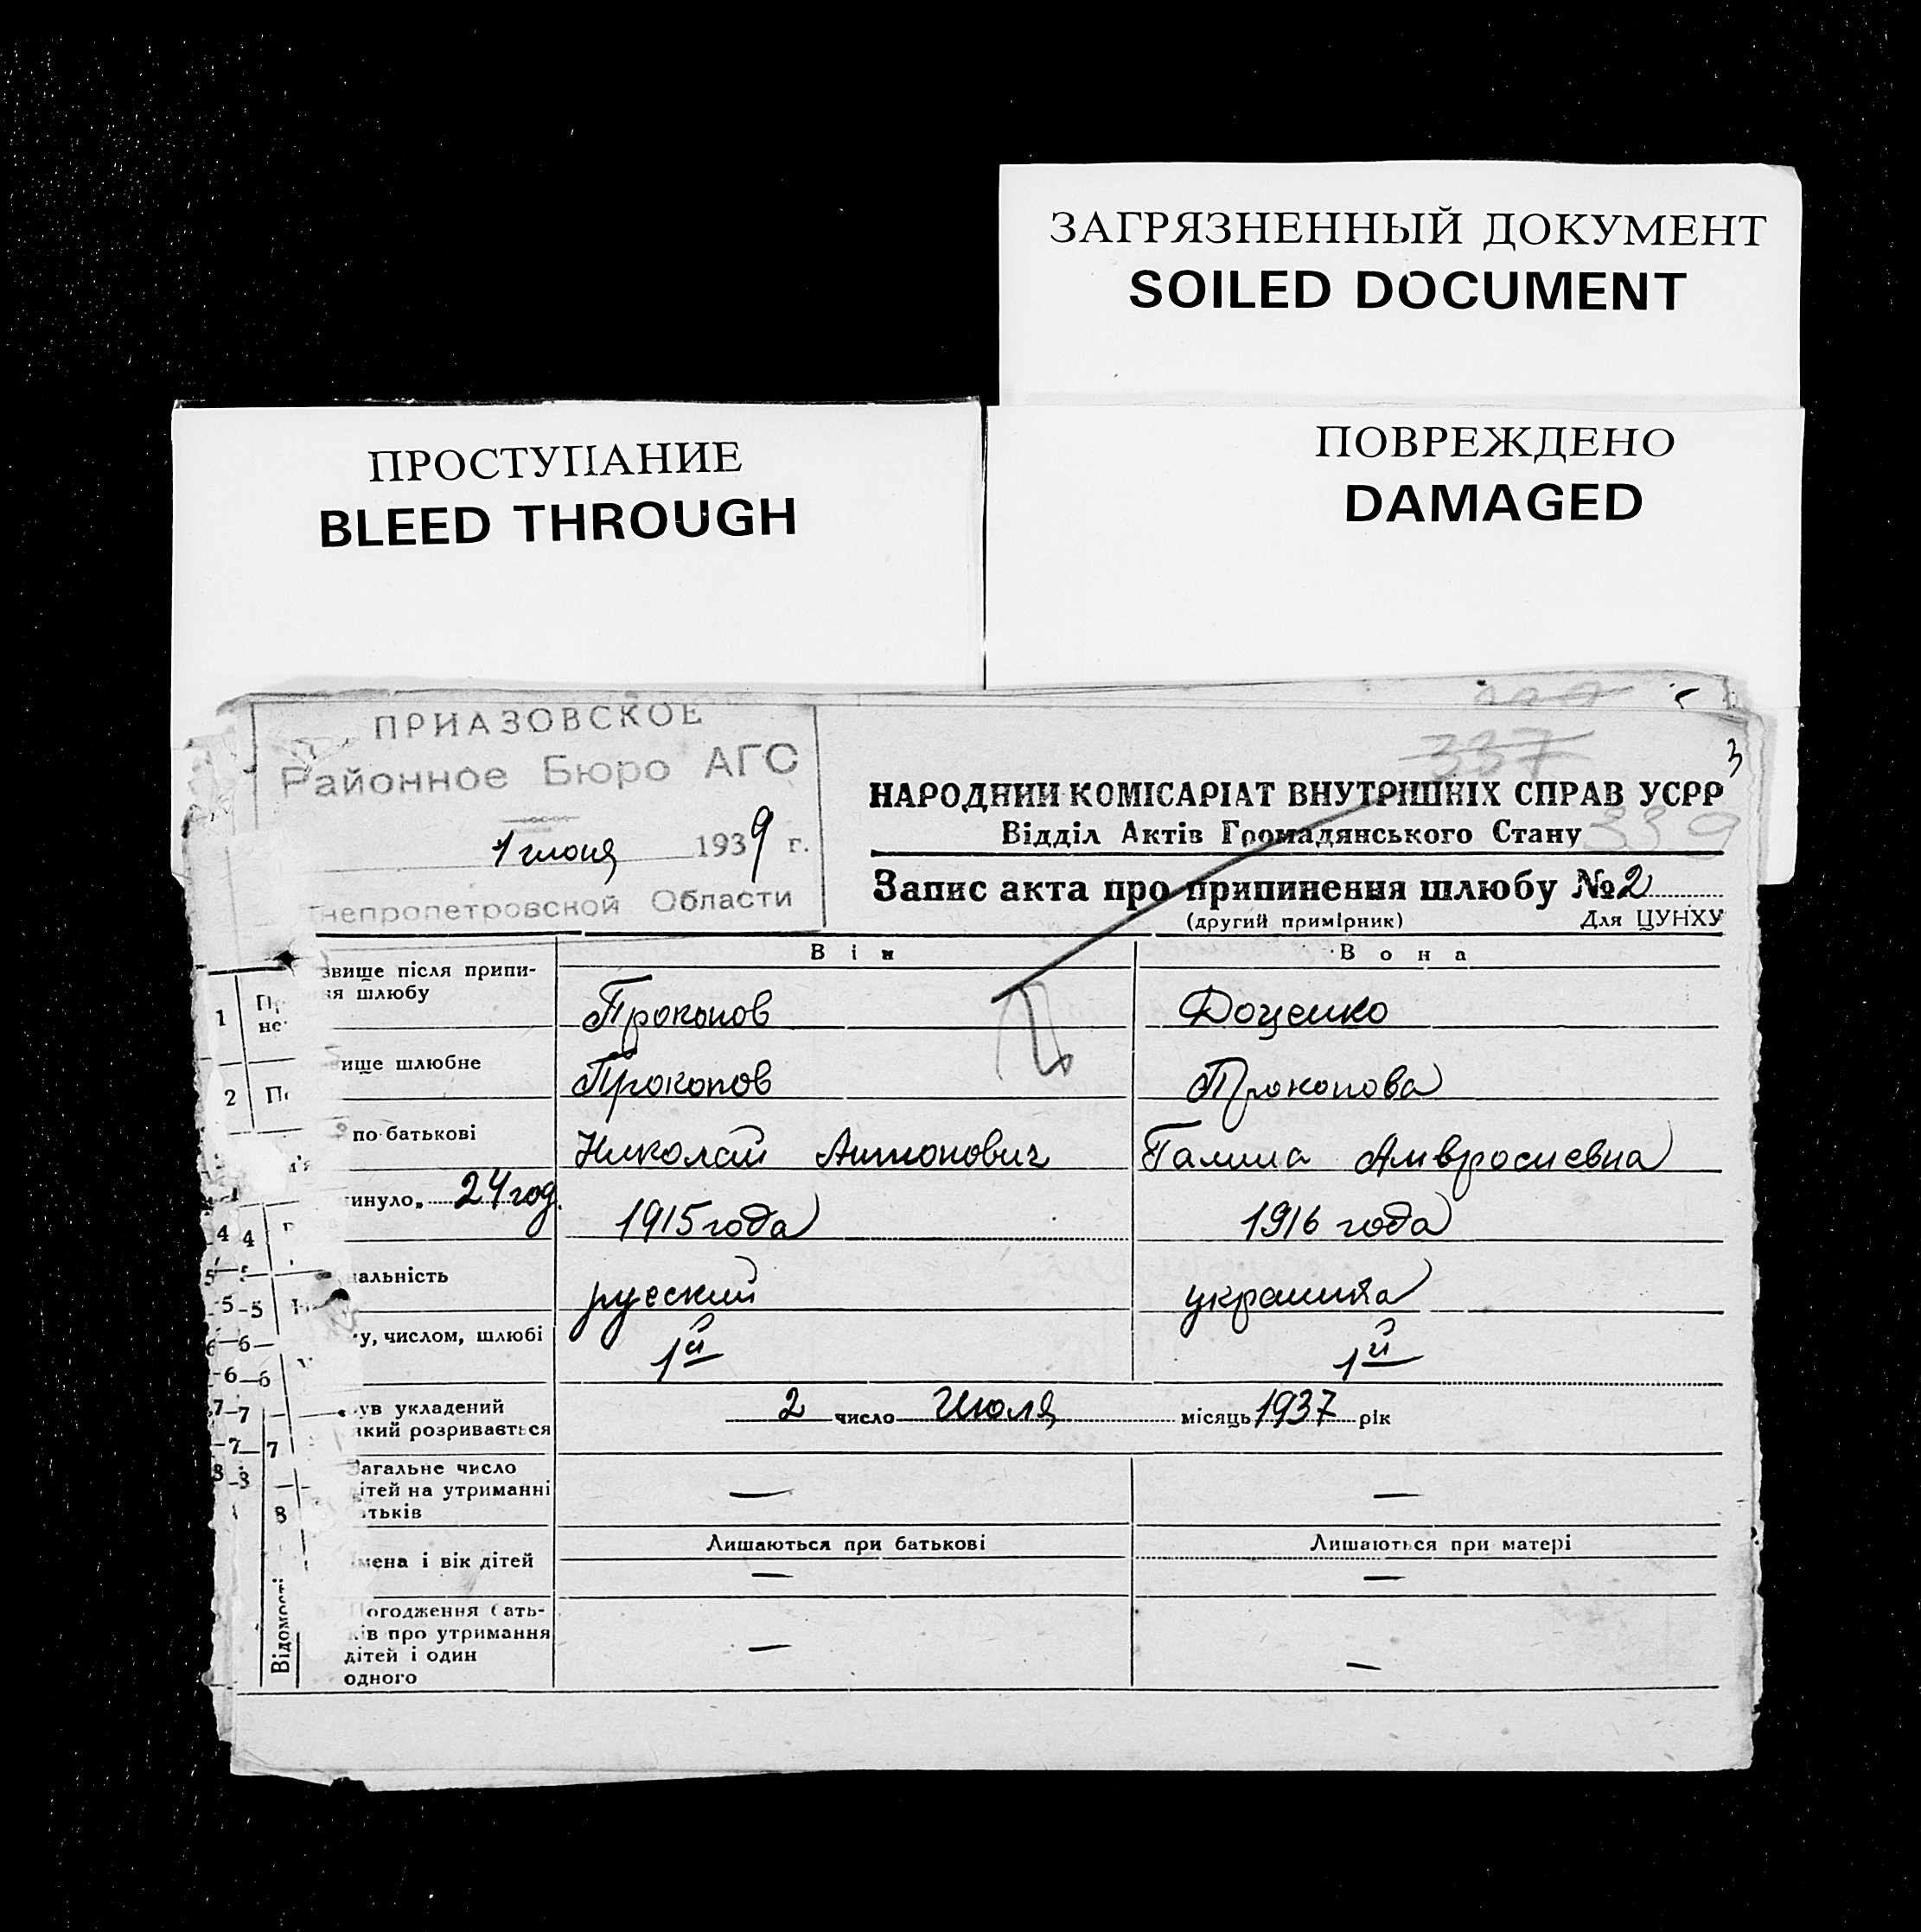 ЗАГРЯЗНЕННЫЙ ДОКУМЕНТ
SOILED DOCUMENT
ПРОСТУПАНИЕ
BLEED THROUGH
ПОВРЕЖДЕНО
DAMAGED
ПРИАЗОВСКОЕ
Районное Бюро АГС
1 июня 1939 г.
непропетровской Области
337
3
НАРОДНИЙ КОМІСАРІАТ ВНУТРІШНІХ СПРАВ УСРР
Відділ Актів Громадянського Стану
339
Запис акта про припинення шлюбу №2
(другий примірник) Для ЦУНХУ
Він Вона
1 звище після припи-
ня шлюбу
Прокопов Доценко
2 ище шлюбне Прокопов Прокопова
по-батькові Николай Антонович Галина Амвросиевна
инуло 24 год. 1915 года 1916 года
4 4
нальність русский украинка
5 5
у, числом, шлюбі 1й 1й
6 6
ув укладений
який розривається
2 число Июля місяць 1937 рік
7 7
Загальне число
ітей на утриманні
тьків
— —
8
мена і вік дітей
Лишаються при батькові Лишаються при матері
— —
Відомості
Погодження бать-
ків про утримання
дітей і один
одного
— —